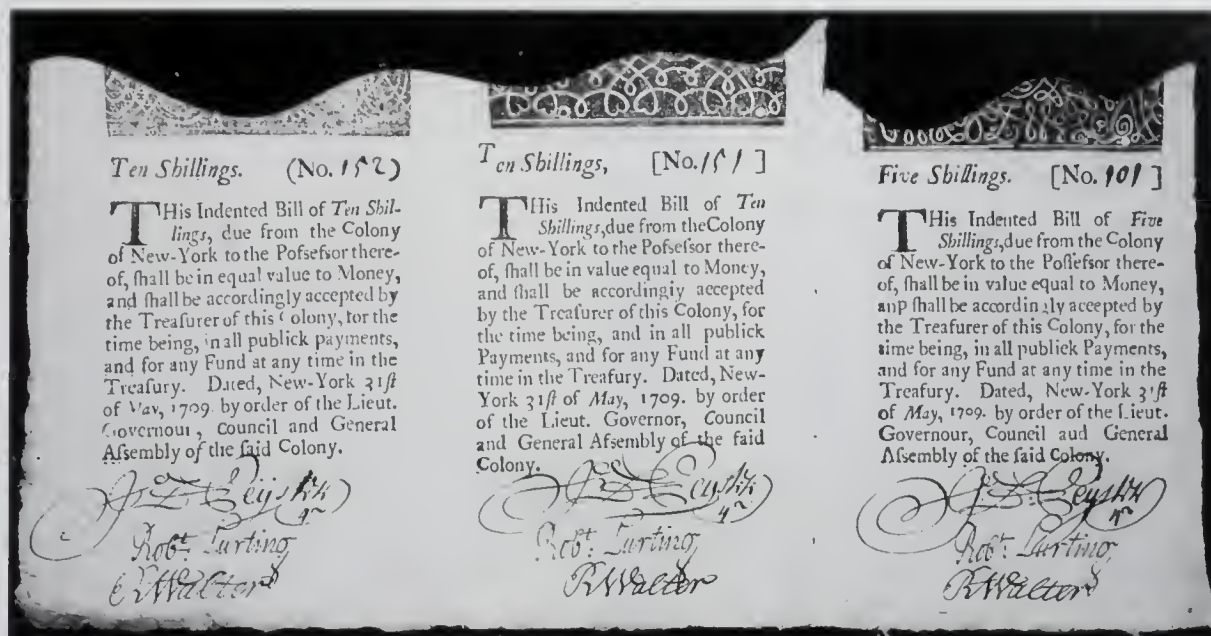 Ten Shillings. (No. 152)
THis Indented Bill of Ten Shil-
lings, due from the Colony
of New-York to the Poſseſsor there-
of, ſhall be in equal value to Money,
and ſhall be accordingly accepted by
the Treaſurer of this Colony, for the
time being, in all publick payments,
and for any Fund at any time in the
Treaſury. Dated, New-York 31ſt
of May, 1709. by order of the Lieut.
Governour, Council and General
Aſsembly of the ſaid Colony.
Robt. Lurting
R Walter
Ten Shillings, [No. 151]
THis Indented Bill of Ten
Shillings, due from the Colony
of New-York to the Poſseſsor there-
of, ſhall be in value equal to Money,
and ſhall be accordingly accepted
by the Treaſurer of this Colony, for
the time being, and in all publick
Payments, and for any Fund at any
time in the Treaſury. Dated, New-
York 31ſt of May, 1709. by order
of the Lieut. Governor, Council
and General Aſsembly of the ſaid
Colony.
Robt. Lurting
R Walter
Five Shillings. [No. 101]
THis Indented Bill of Five
Shillings, due from the Colony
of New-York to the Poſſeſsor there-
of, ſhall be in value equal to Money,
anp ſhall be accordingly accepted by
the Treaſurer of this Colony, for the
time being, in all publick Payments,
and for any Fund at any time in the
Treaſury. Dated, New-York 31ſt
of May, 1709. by order of the Lieut.
Governour, Council aud General
Aſsembly of the ſaid Colony.
Robt. Lurting
R Walter